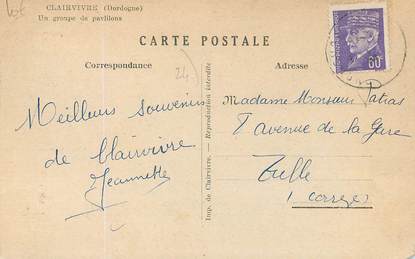 lot
CLAIRVIVRE (Dordogne)
Un groupe de pavillons
CARTE POSTALE
Correspondance
Adresse
24
Meilleurs souvenirs
de Clairvivre
Jeannette
Imp. de Clairvivre. — Reproduction interdite
60
Madame Monsieur Patias
8 avenue de la Gare
Tulle
(Corrèze)